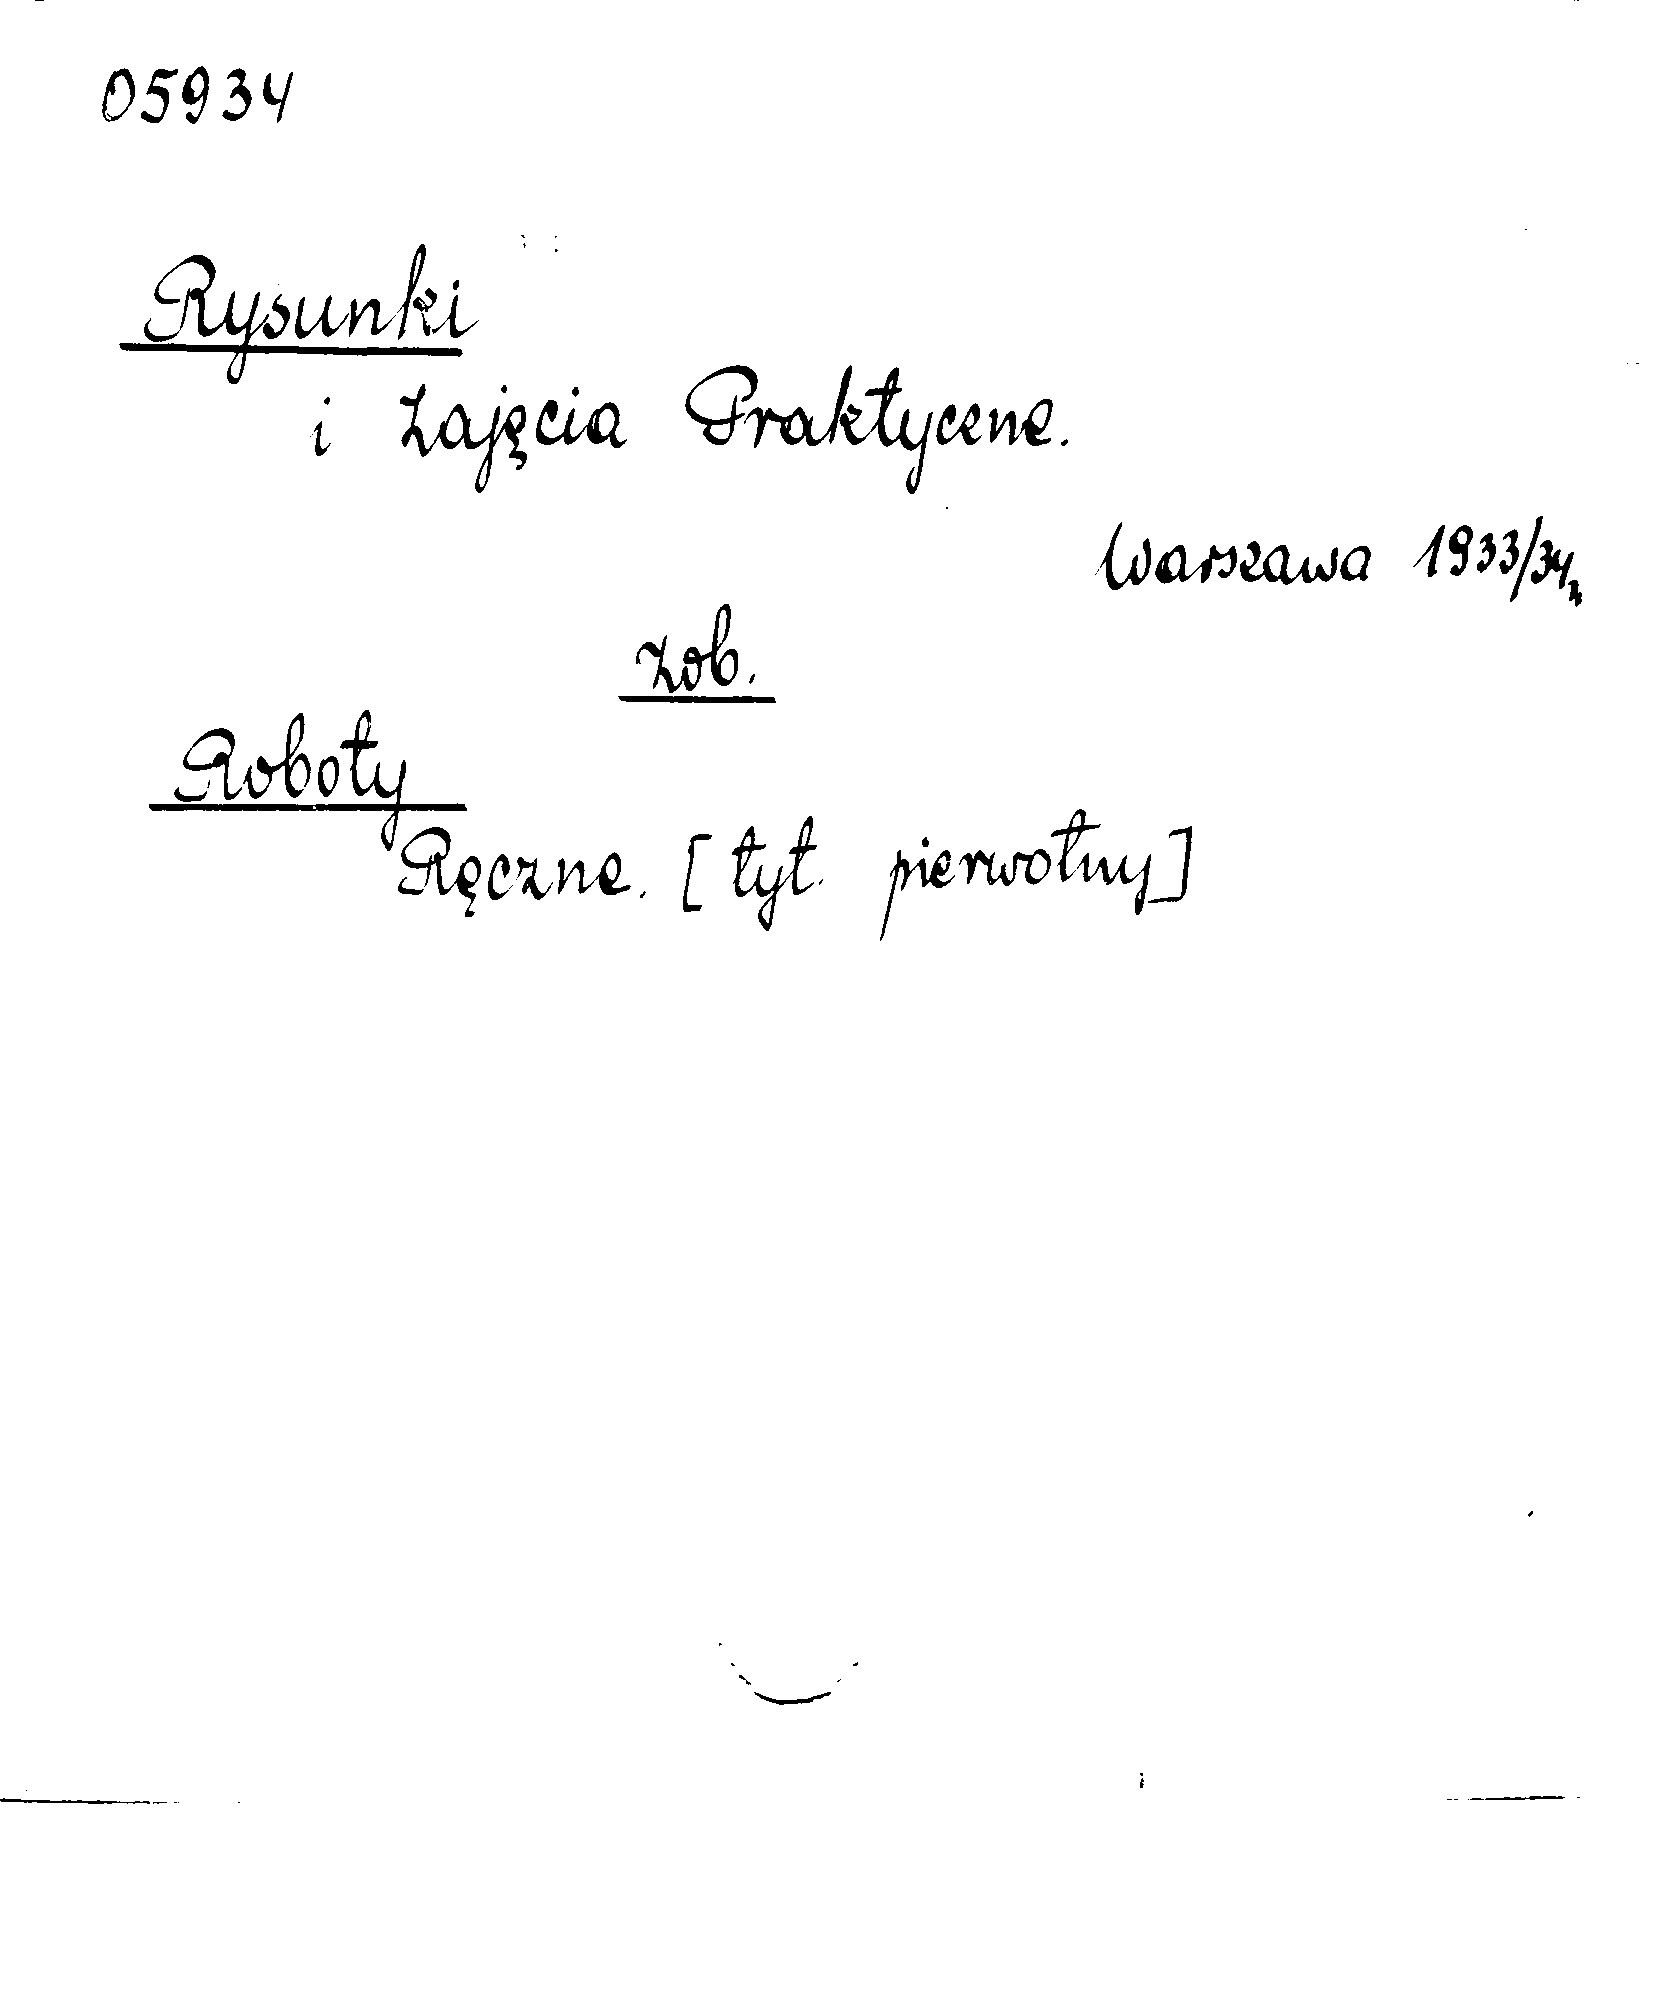 05934
Rysunki
i Zajęcia Praktyczne.
Warszawa 1933/34
Zob.
Roboty
Ręczne. [tyt. pierwotny]